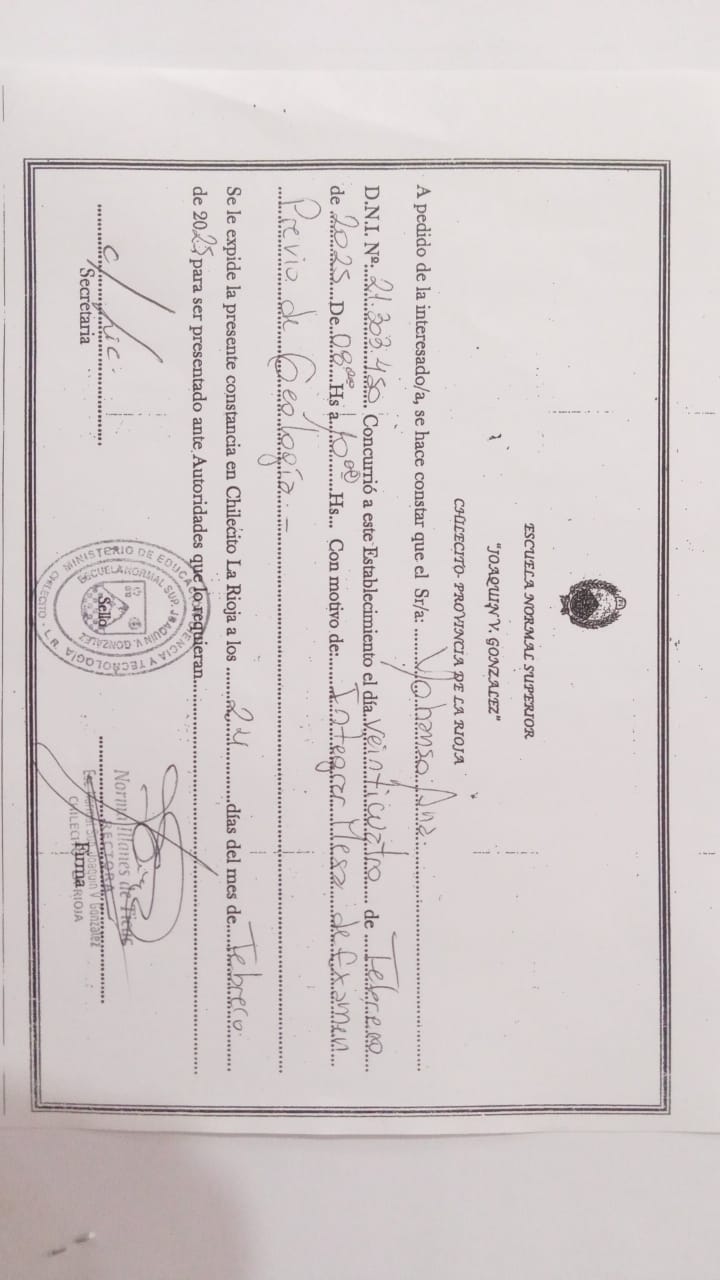 ESCUELA NORMAL SUPERIOR
"JOAQUIN V. GONZALEZ"
CHILECITO- PROVINCIA DE LA RIOJA
A pedido de la interesado/a, se hace constar que el Sr/a: ........ Ana.
D.N.I. Nº: 21.303.450 Concurrió a este Establecimiento el día veinticuatro de Febrero
de 2025 De 08⁰⁰ Hs a 10⁰⁰ Hs... Con motivo de: Integrar Mesa de Examen
Previo de Geología.-
Se le expide la presente constancia en Chilecito La Rioja a los 24 días del mes de Febrero
de 2025 para ser presentado ante Autoridades que lo requieran.
c/ lic.
Secretaria
Sello
MINISTERIO DE EDUCACIÓN, CIENCIA Y TECNOLOGÍA
ESCUELA NORMAL SUP. JOAQUIN V. GONZALEZ
CHILECITO - L.R.
Norma Illanes de
RECTORA
Esc. Normal Sup. Joaquin V. Gonzalez
CHILECITO - LA RIOJA
Firma